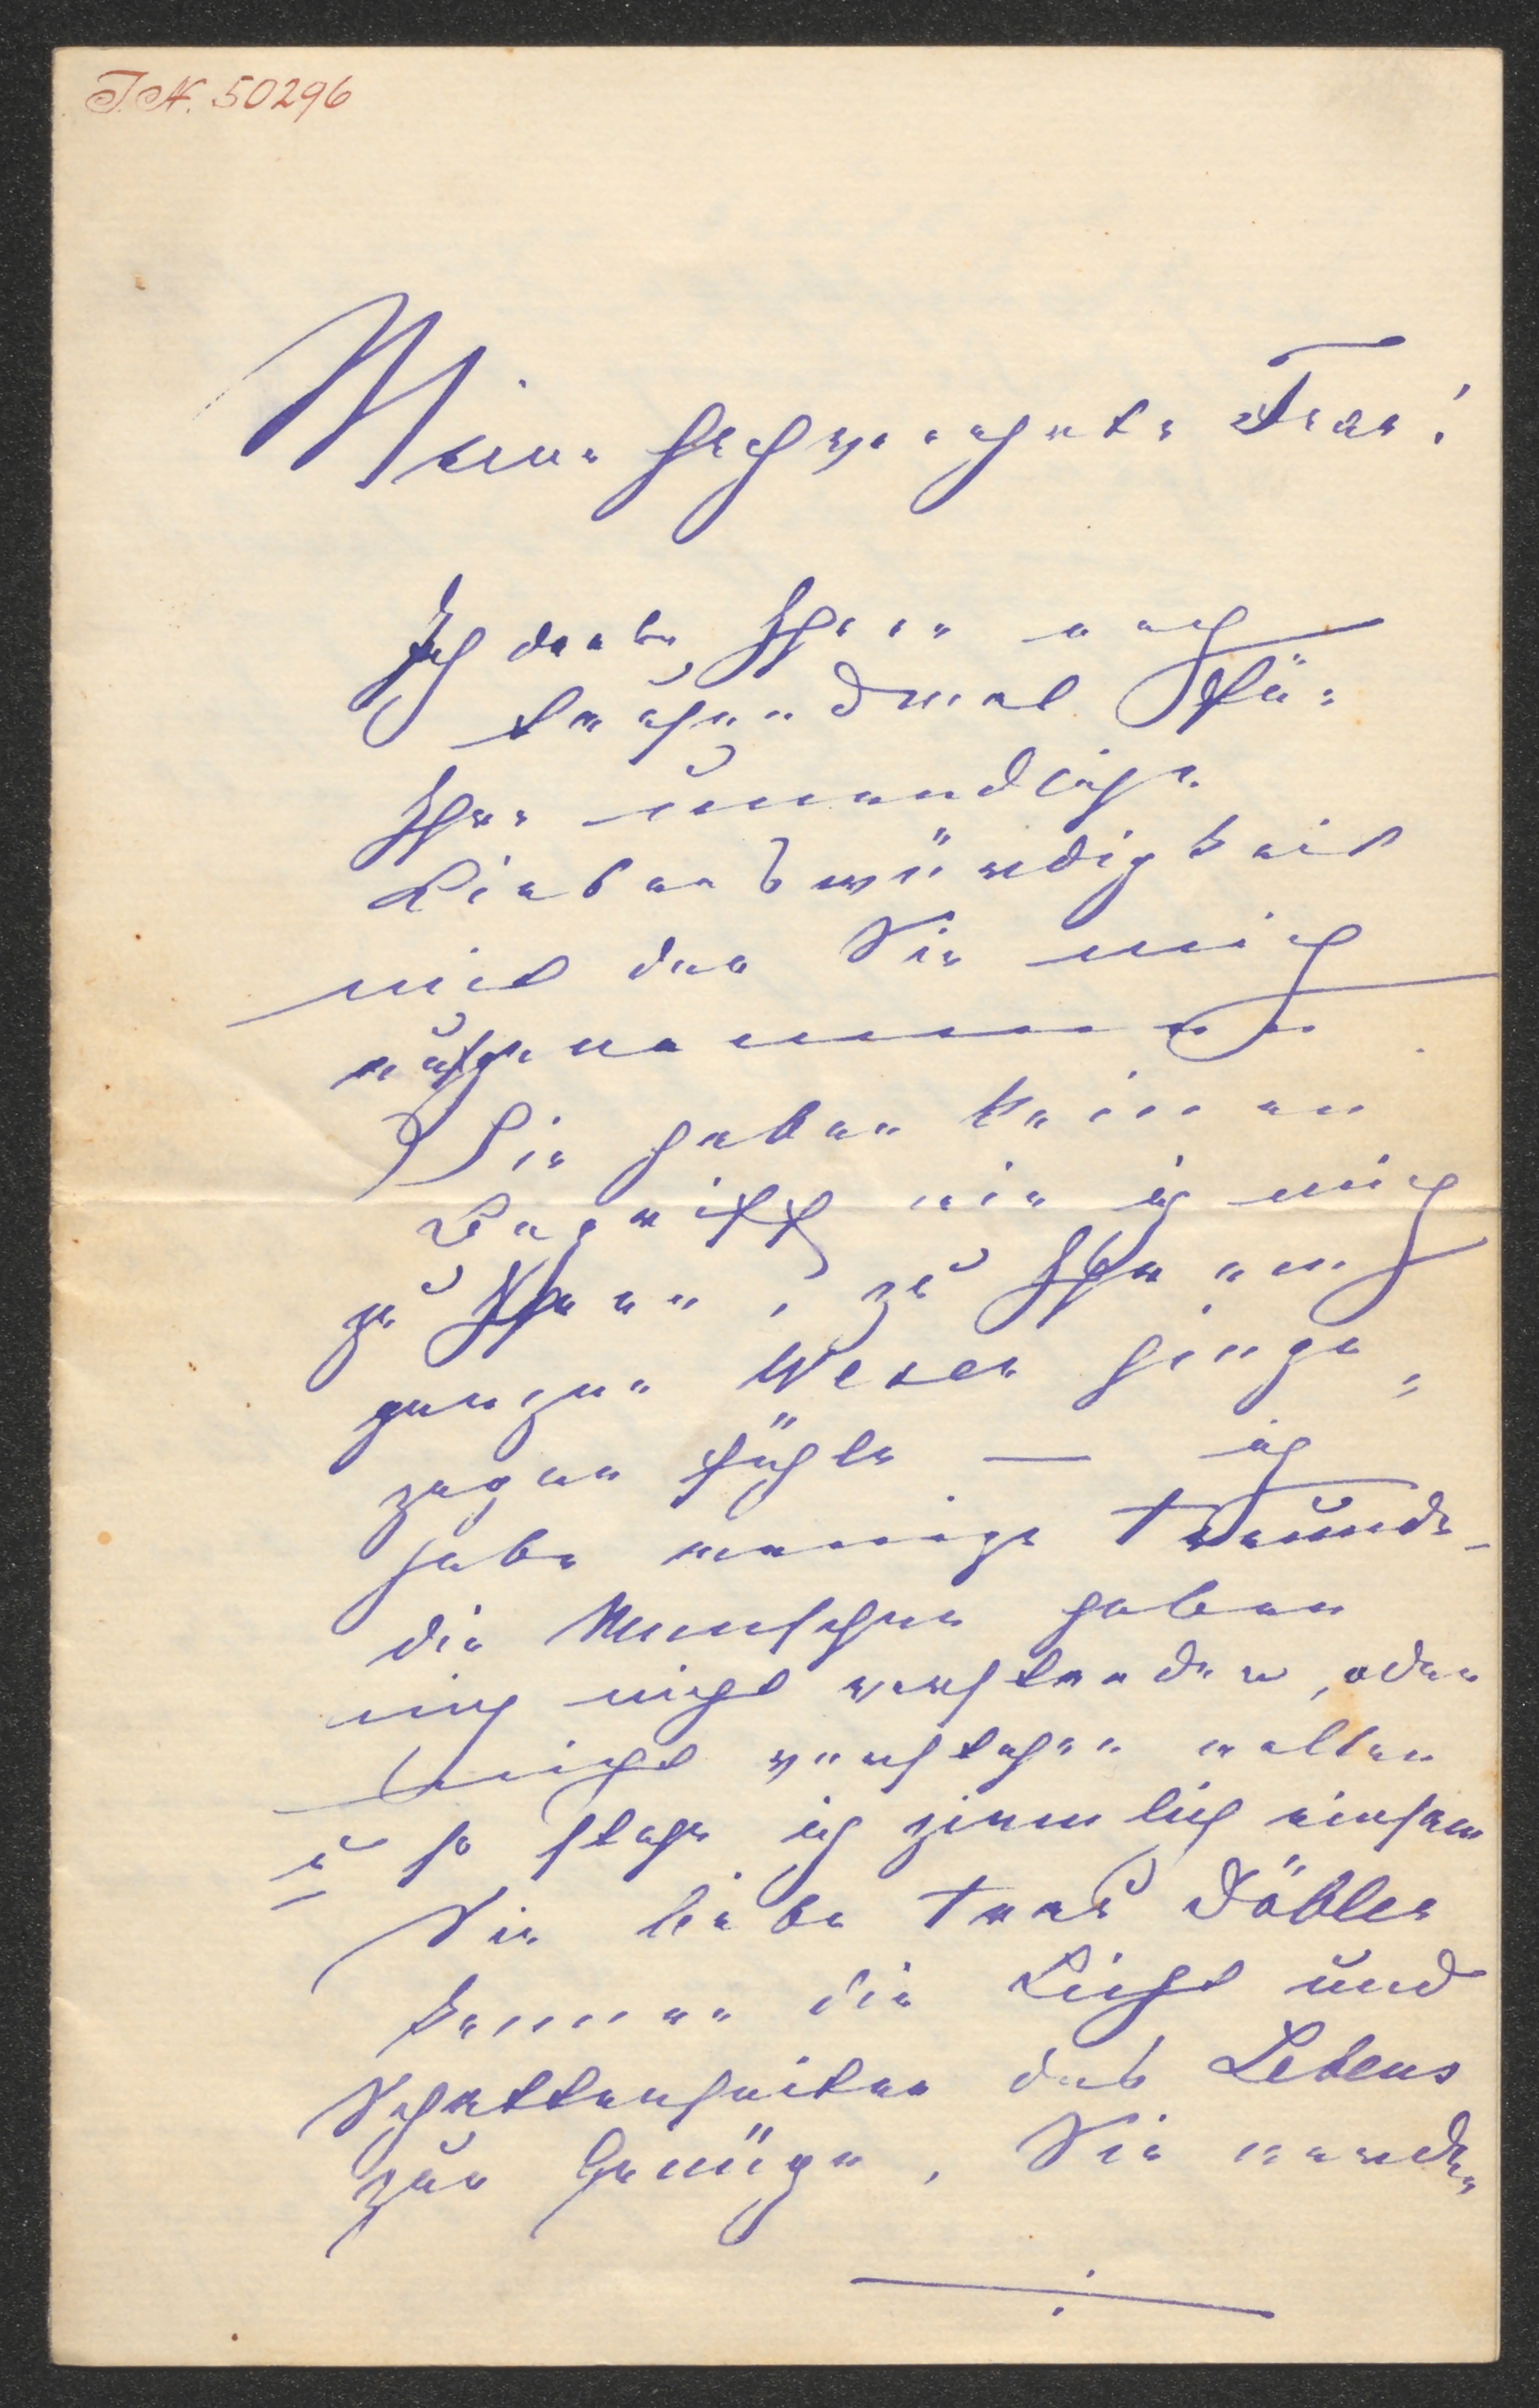 I.N. 50296
Meine hochverehrte Frau!
Ich danke Ihnen noch
tausendmal für
Ihre unendliche
Liebenswürdigkeit
mit der Sie mich
aufgenommen
Sie haben keinen
Begriff wie ich mich
zu Ihnen, zu Ihrem
ganzen Wesen hinge=
zogen fühle — ich
habe wenige Freunde –
die Menschen haben
mich nicht verstanden, oder
nicht verstehen wollen
u so stehe ich ziemlich einsam
Sie liebe Frau Döbler
kennen die Licht und
Schattenseiten des Lebens
zur Genüge, Sie werden